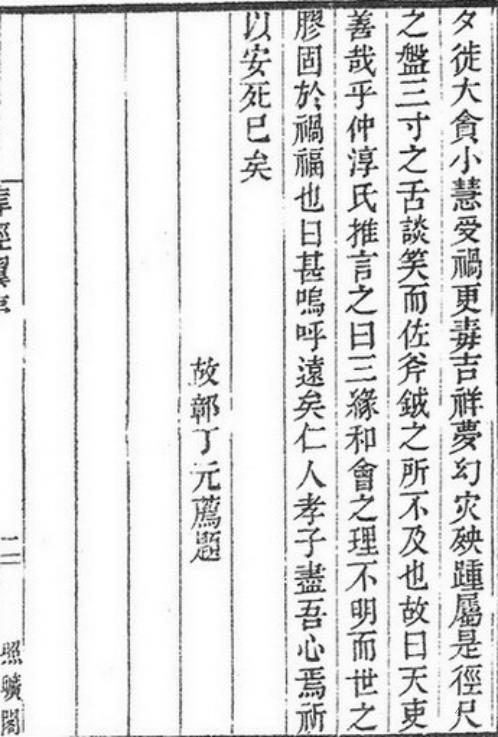 夕徒大貪小慧受禍更毒吉祥夢幻灾殃踵屬是徑尺
之盤三寸之舌談笑而佐斧鉞之所不及也故曰天吏
善哉乎仲淳氏推言之曰三緣和會之理不明而世之
膠固於禍福也日甚嗚呼遠矣仁人孝子盡吾心焉祈
以安死已矣
故鄣丁元薦題
經翼
二
照曠閣